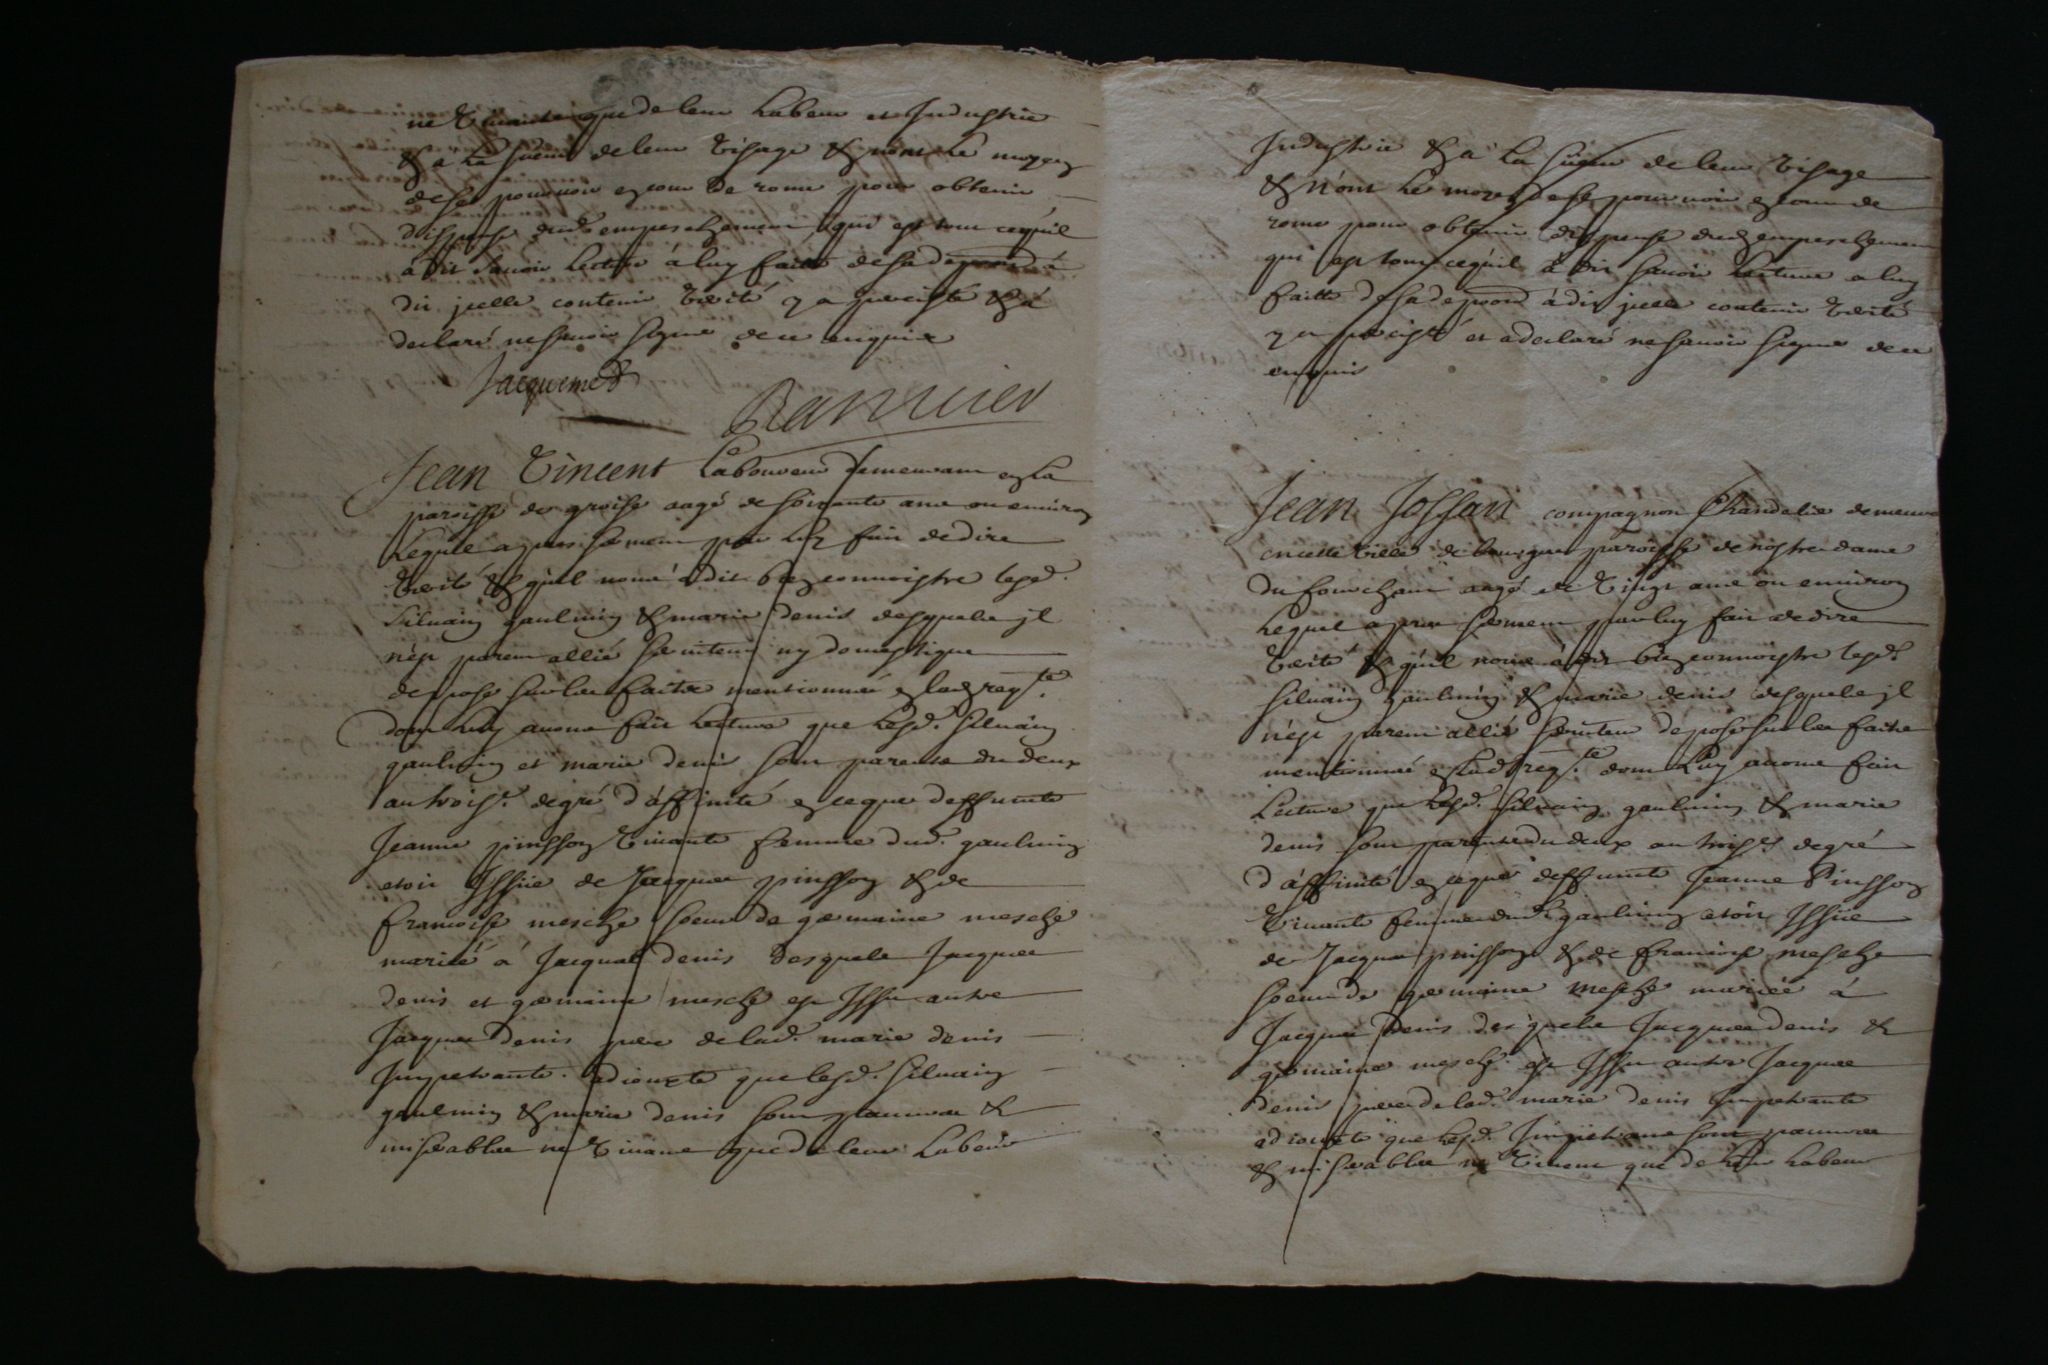 ne vivants que de leur labeur et Industrie
& a la sueur de leur visage & n'ont le moyen
de se pourvoir en cour de rome pour obtenir
dispense dud. empeschement qui est tout ce qu'il
a dit scavoir lecture á luy faitte de sa déposition á
dit jcelle contenir verité y a percisté & á
declaré ne scavoir signer de ce enquis
Jacquemet
Jean Vincent Laboureur demeurant en la
paroisse de groise aagé de soixante ans ou environ
lequel apres serment par luy fait de dire
verité & qu'il nous á dit bien connoistre lesd.
Silvain gaulmin & marie denis desquels jl
n'est parent allié serviteur ny domestique
depose sur les faits mentionnés en lad. reqte.
dont luy avons fait lecture que lesd. Silvain
gaulmin et marie denis sont parents du deux
au trois.e degré d'áffinité en ce que deffunte
Jeanne pinsson vivante femme dud. gaulmin
etoit Issüe de Jacques pinsson & de
francoise mesche soeur de germaine mesche
mariée á Jacques denis desquels Jacques
denis et germaine mesche est Issu autre
Jacques denis pere de lad. marie denis
Impetrante. adiouxte que lesd. Silvain
gaulmin & marie denis sont pauvres &
miserables ne vivans que de leur Labeur
Industrie & á la süeur de leur visage
& n'ont le moyen de se pourvoir en cour de
rome pour obtenir dispense dud. empeschement
qui est tout ce qu'il á dit scavoir lecture a luy
faitte de sa depoon á dit jcelle contenir verité
y a percisté et a declaré ne scavoir signer de ce
enquis
Jean Jossant compagnon Chandelier demeurt
en cette ville de bourges paroisse de nostre dame
du fourchaut aagé de vingt ans ou environ
lequel apres serment par luy fait de dire
verité & qu'il nous á dit bien connoistre lesd.
silvain gaulmin & marie denis desquels jl
n'est parent allié serviteur depose sur les faits
mentionnés en lad. reqte. dont luy avons fait
Lecture que lesd. silvain gaulmin & marie
denis sont parents du deux au trois.e degré
d'áffinité en ce que deffunte Jeanne Pinsson
vivante femme dud. gaulmin etoit Issüe
de Jacques pinsson & de francoise mesche
soeur de germaine mesche mariée á
Jacques denis desquels Jacques denis &
germaine mesche est Issu autre Jacques
denis pere de lad. marie denis Impetrante
adiouxte que lesd. Impetrans sont pauvres
& miserables ne vivent que de leur labeur